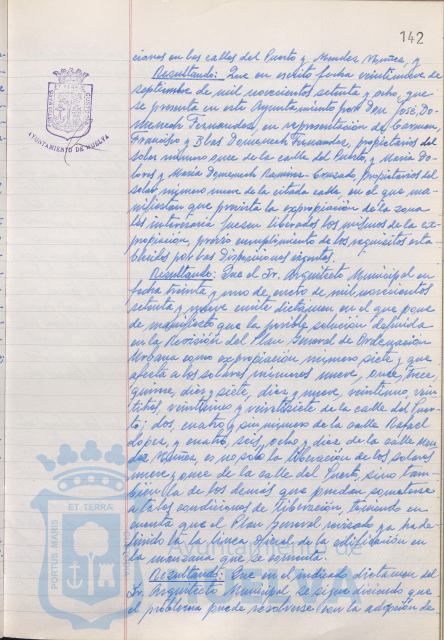 142
ciones en las calles del Puerto y Mendez Nuñez, y
Resultando: Que en escrito fecha veintinueve de
septiembre de mil novecientos setenta y ocho, que
se presenta en este Ayuntamiento por Don José Do-
menech Fernandez, en representación de Carmen
Francisco y Blas Domenech Fernandez, propietarios del
solar número once de la calle del Puerto, y Maria Do-
lores y Maria Domenech Ramirez Cruzado, Propietarios del
solar número nueve de la citada calle en el que ma-
nifiestan que prevista la expropiación de la zona
les interesaria fuesen liberados los mismos de la ex-
propiación, previo cumplimiento de los requisitos esta
blecidos por las Disposiciones vigentes.
Resultando: Que el Sr. Arquitecto Municipal en
fecha treinta y uno de enero de mil novecientos
setenta y nueve emite dictamen en el que pone
de manifiesto que la posible solución definida
en la Revisión del Plan General de Ordenación
Urbana como expropiación número siete y que
afecta a los solares números nueve, once, trece
quince, diez y siete, diez y nueve, veintiuno, vein
titres, veinticinco y veintisiete de la calle del Puer-
to; dos, cuatro y sin número de la calle Rafael
López, y cuatro, seis, ocho y diez de la calle Men
dez Nuñez, es no solo la liberación de los solares
nueve y once de la calle del Puerto, sino tam-
bién la de los demás que puedan someterse
a las condiciones de liberación, teniendo en
cuenta que el Plan General revisado ya ha de
finido la linea oficial de la edificación en
la manzana que se comenta.
Resultando: Que en el indicado dictamen del
Sr. Arquitecto Municipal se sigue diciendo que
el problema puede resolverse con la adopción de
AYUNTAMIENTO DE HUELVA
PORTUS MARIS
ET TERRAE
Ayuntamiento de